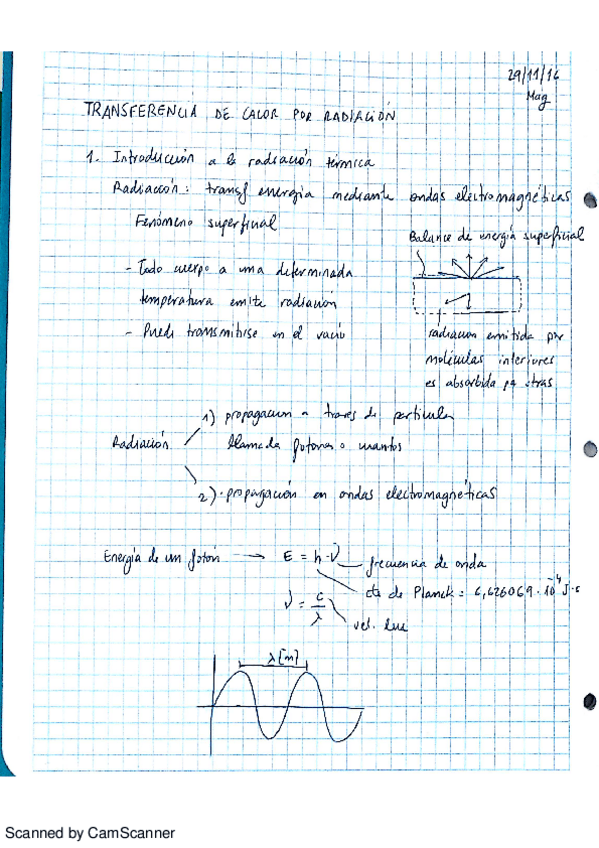 29/11/16
Mag
TRANSFERENCIA DE CALOR POR RADIACIÓN
1. Introducción a la radiación térmica
Radiación: transf energia mediante ondas electromagnéticas
Fenómeno superficial
Balance de energía superficial
- Todo cuerpo a una determinada
temperatura emite radiación
- Puede transmitirse en el vacío
radiacion emitida por
moléculas interiores
es absorbida por otras
Radiación
1) propagacion a traves de particulas
llamada fotones o cuantos
2) propagación en ondas electromagnéticas
Energía de un foton → E = h·ν
frecuencia de onda
cte de Planck = 6,626069·10⁻⁴ J·s
ν = c/λ
vel. luz
λ [m]
Scanned by CamScanner